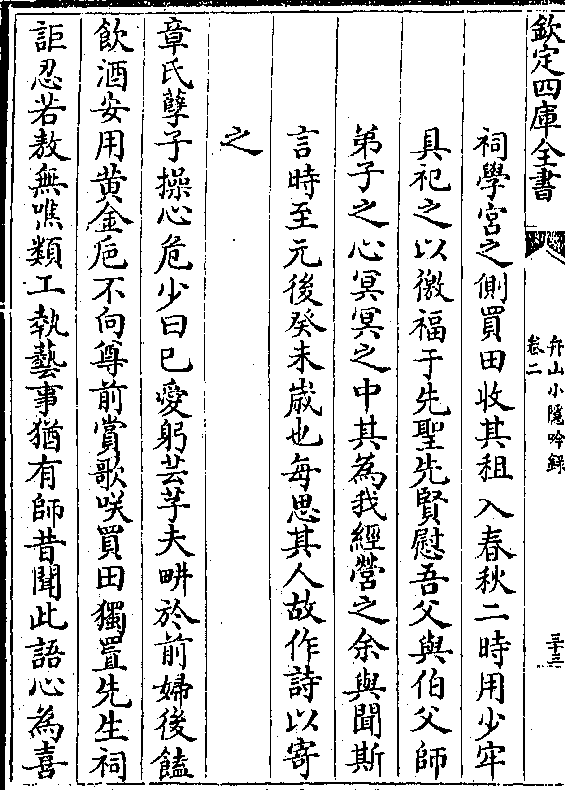 欽定四庫全書
弁山小隱吟録
卷二
三十三
祠學宮之側買田收其租入春秋二時用少牢
具祀之以徼福于先聖先賢慰吾父與伯父師
弟子之心冥冥之中其為我經營之余與聞斯
言時至元後癸未歲也每思其人故作詩以寄
之
章氏孽子操心危少日已愛躬芸芋夫畊於前婦後饁
飲酒安用黄金巵不向尊前賞歌咲買田獨置先生祠
詎忍若敖無噍類工執藝事猶有師昔聞此語心為喜